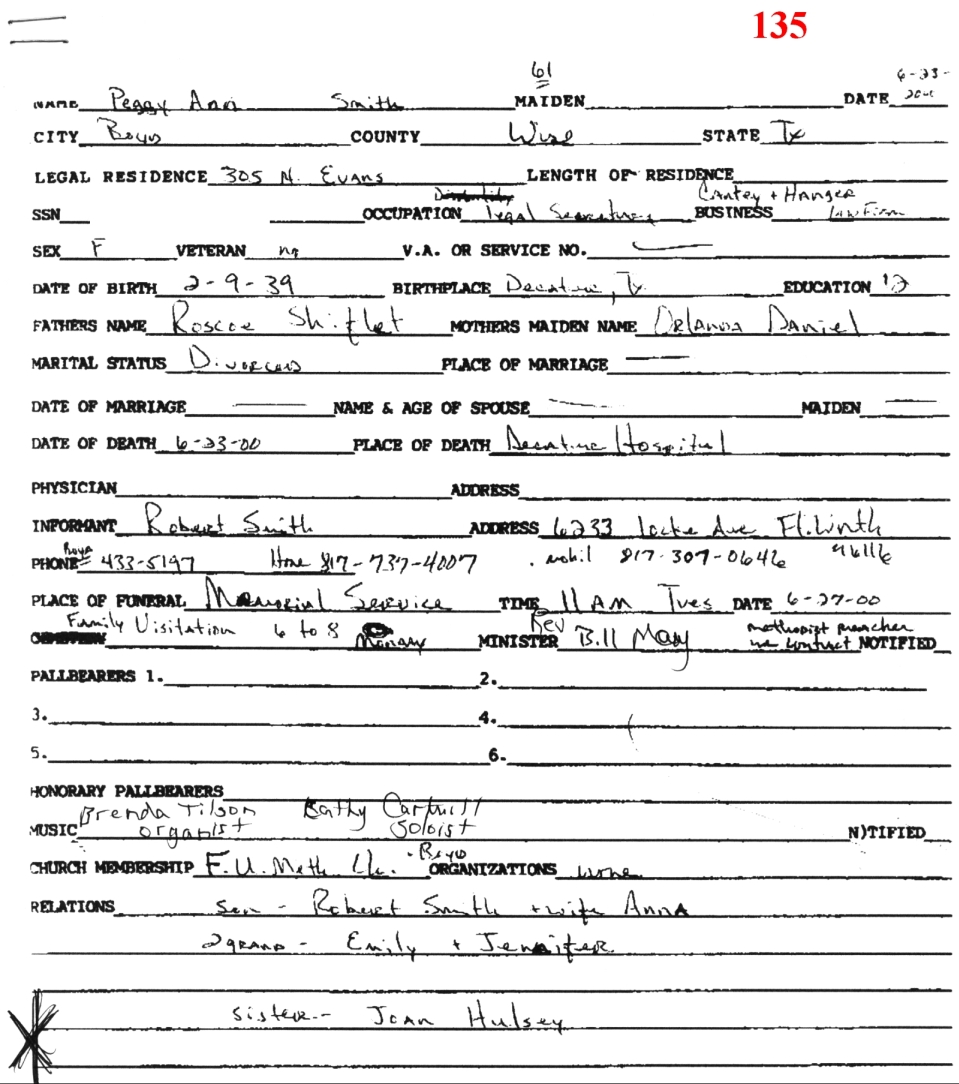 135
61 6-23-
NAME Peggy Ann Smith MAIDEN DATE 2000
CITY Boyd COUNTY Wise STATE Tx
LEGAL RESIDENCE 305 N. Evans LENGTH OF RESIDENCE
Disability Cantey + Hanger
SSN OCCUPATION legal Secretary BUSINESS Law Firm
SEX F VETERAN no V.A. OR SERVICE NO.
DATE OF BIRTH 2-9-39 BIRTHPLACE Decatur, Tx EDUCATION 12
FATHERS NAME Roscoe Shiflet MOTHERS MAIDEN NAME Orlanda Daniel
MARITAL STATUS Divorced PLACE OF MARRIAGE
DATE OF MARRIAGE NAME & AGE OF SPOUSE MAIDEN
DATE OF DEATH 6-23-00 PLACE OF DEATH Decatur Hospital
PHYSICIAN ADDRESS
INFORMANT Robert Smith ADDRESS 6233 Locke Ave Ft.Worth
PHONE# Boyd 433-5197 Home 817-737-4007 mobil 817-307-0646 76116
PLACE OF FUNERAL Memorial Service TIME 11 AM Tues DATE 6-27-00
Family Visitation 6 to 8 Rev methodist preacher
CEMETERY Monday MINISTER Bill May we contact NOTIFIED
PALLBEARERS 1. 2.
3. 4.
5. 6.
HONORARY PALLBEARERS
Brenda Tilson Kathy
MUSIC organist Soloist N)TIFIED
CHURCH MEMBERSHIP F.U. Meth Ch. - Boyd ORGANIZATIONS none
RELATIONS Son - Robert Smith + wife Anna
2 grand - Emily + Jennifer
sister - Joan Hulsey